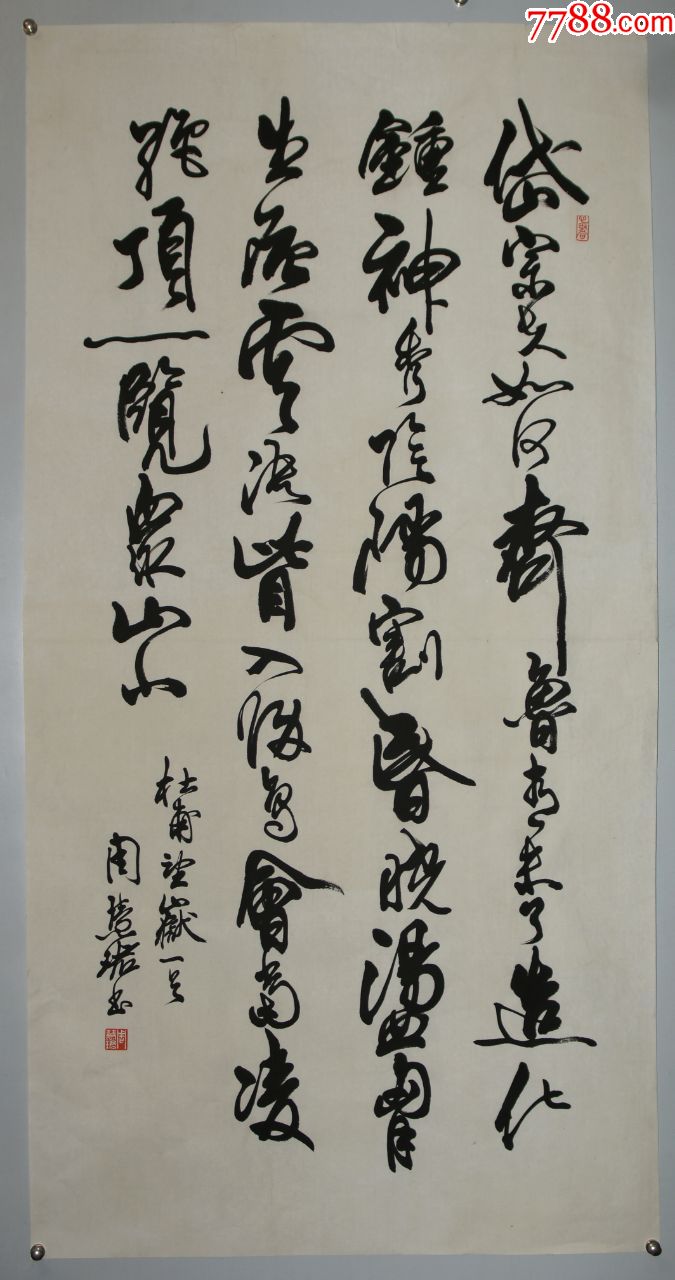 7788.com
岱宗夫如何齊魯青未了造化
鍾神秀陰陽割昏曉盪胷
生層雲决眥入歸鳥會當凌
絕頂一覽衆山小
杜甫望嶽一首
周慧珺書